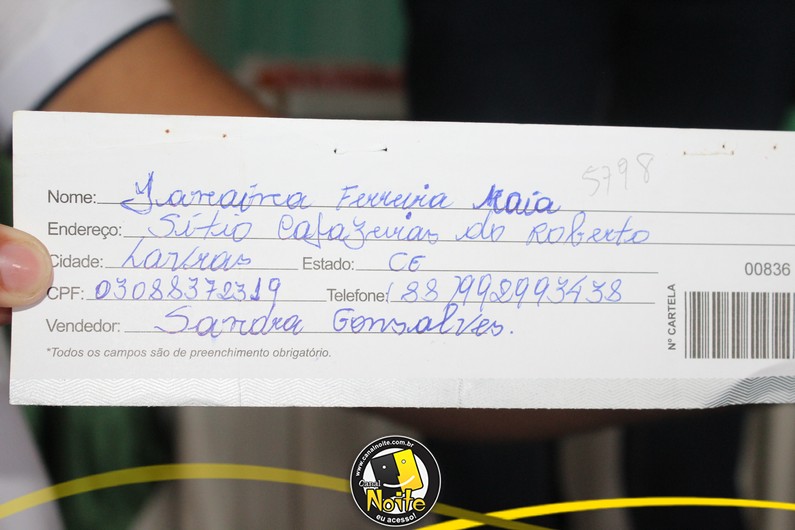 5798
Nome: Janaína Ferreira Maia
Endereço: Sítio Cajazeiras do Roberto
Cidade: Lavras Estado: CE
CPF: 03088372319 Telefone: (88)992993438
Vendedor: Sandra Gonsalves.
*Todos os campos são de preenchimento obrigatório.
00836
Nº CARTELA
www.canalnoite.com.br
Canal
Noite
eu acesso!